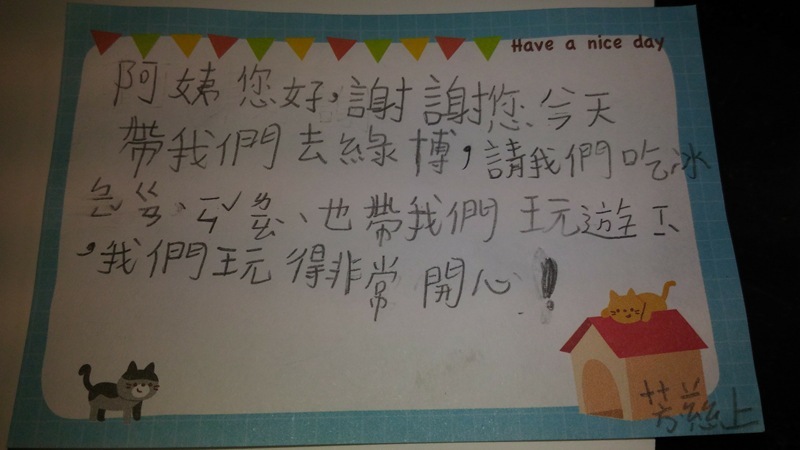 Have a nice day
阿姨您好，謝謝您今天
帶我們去綠博，請我們吃冰
、也帶我們玩遊
，我們玩得非常開心！
芳 上